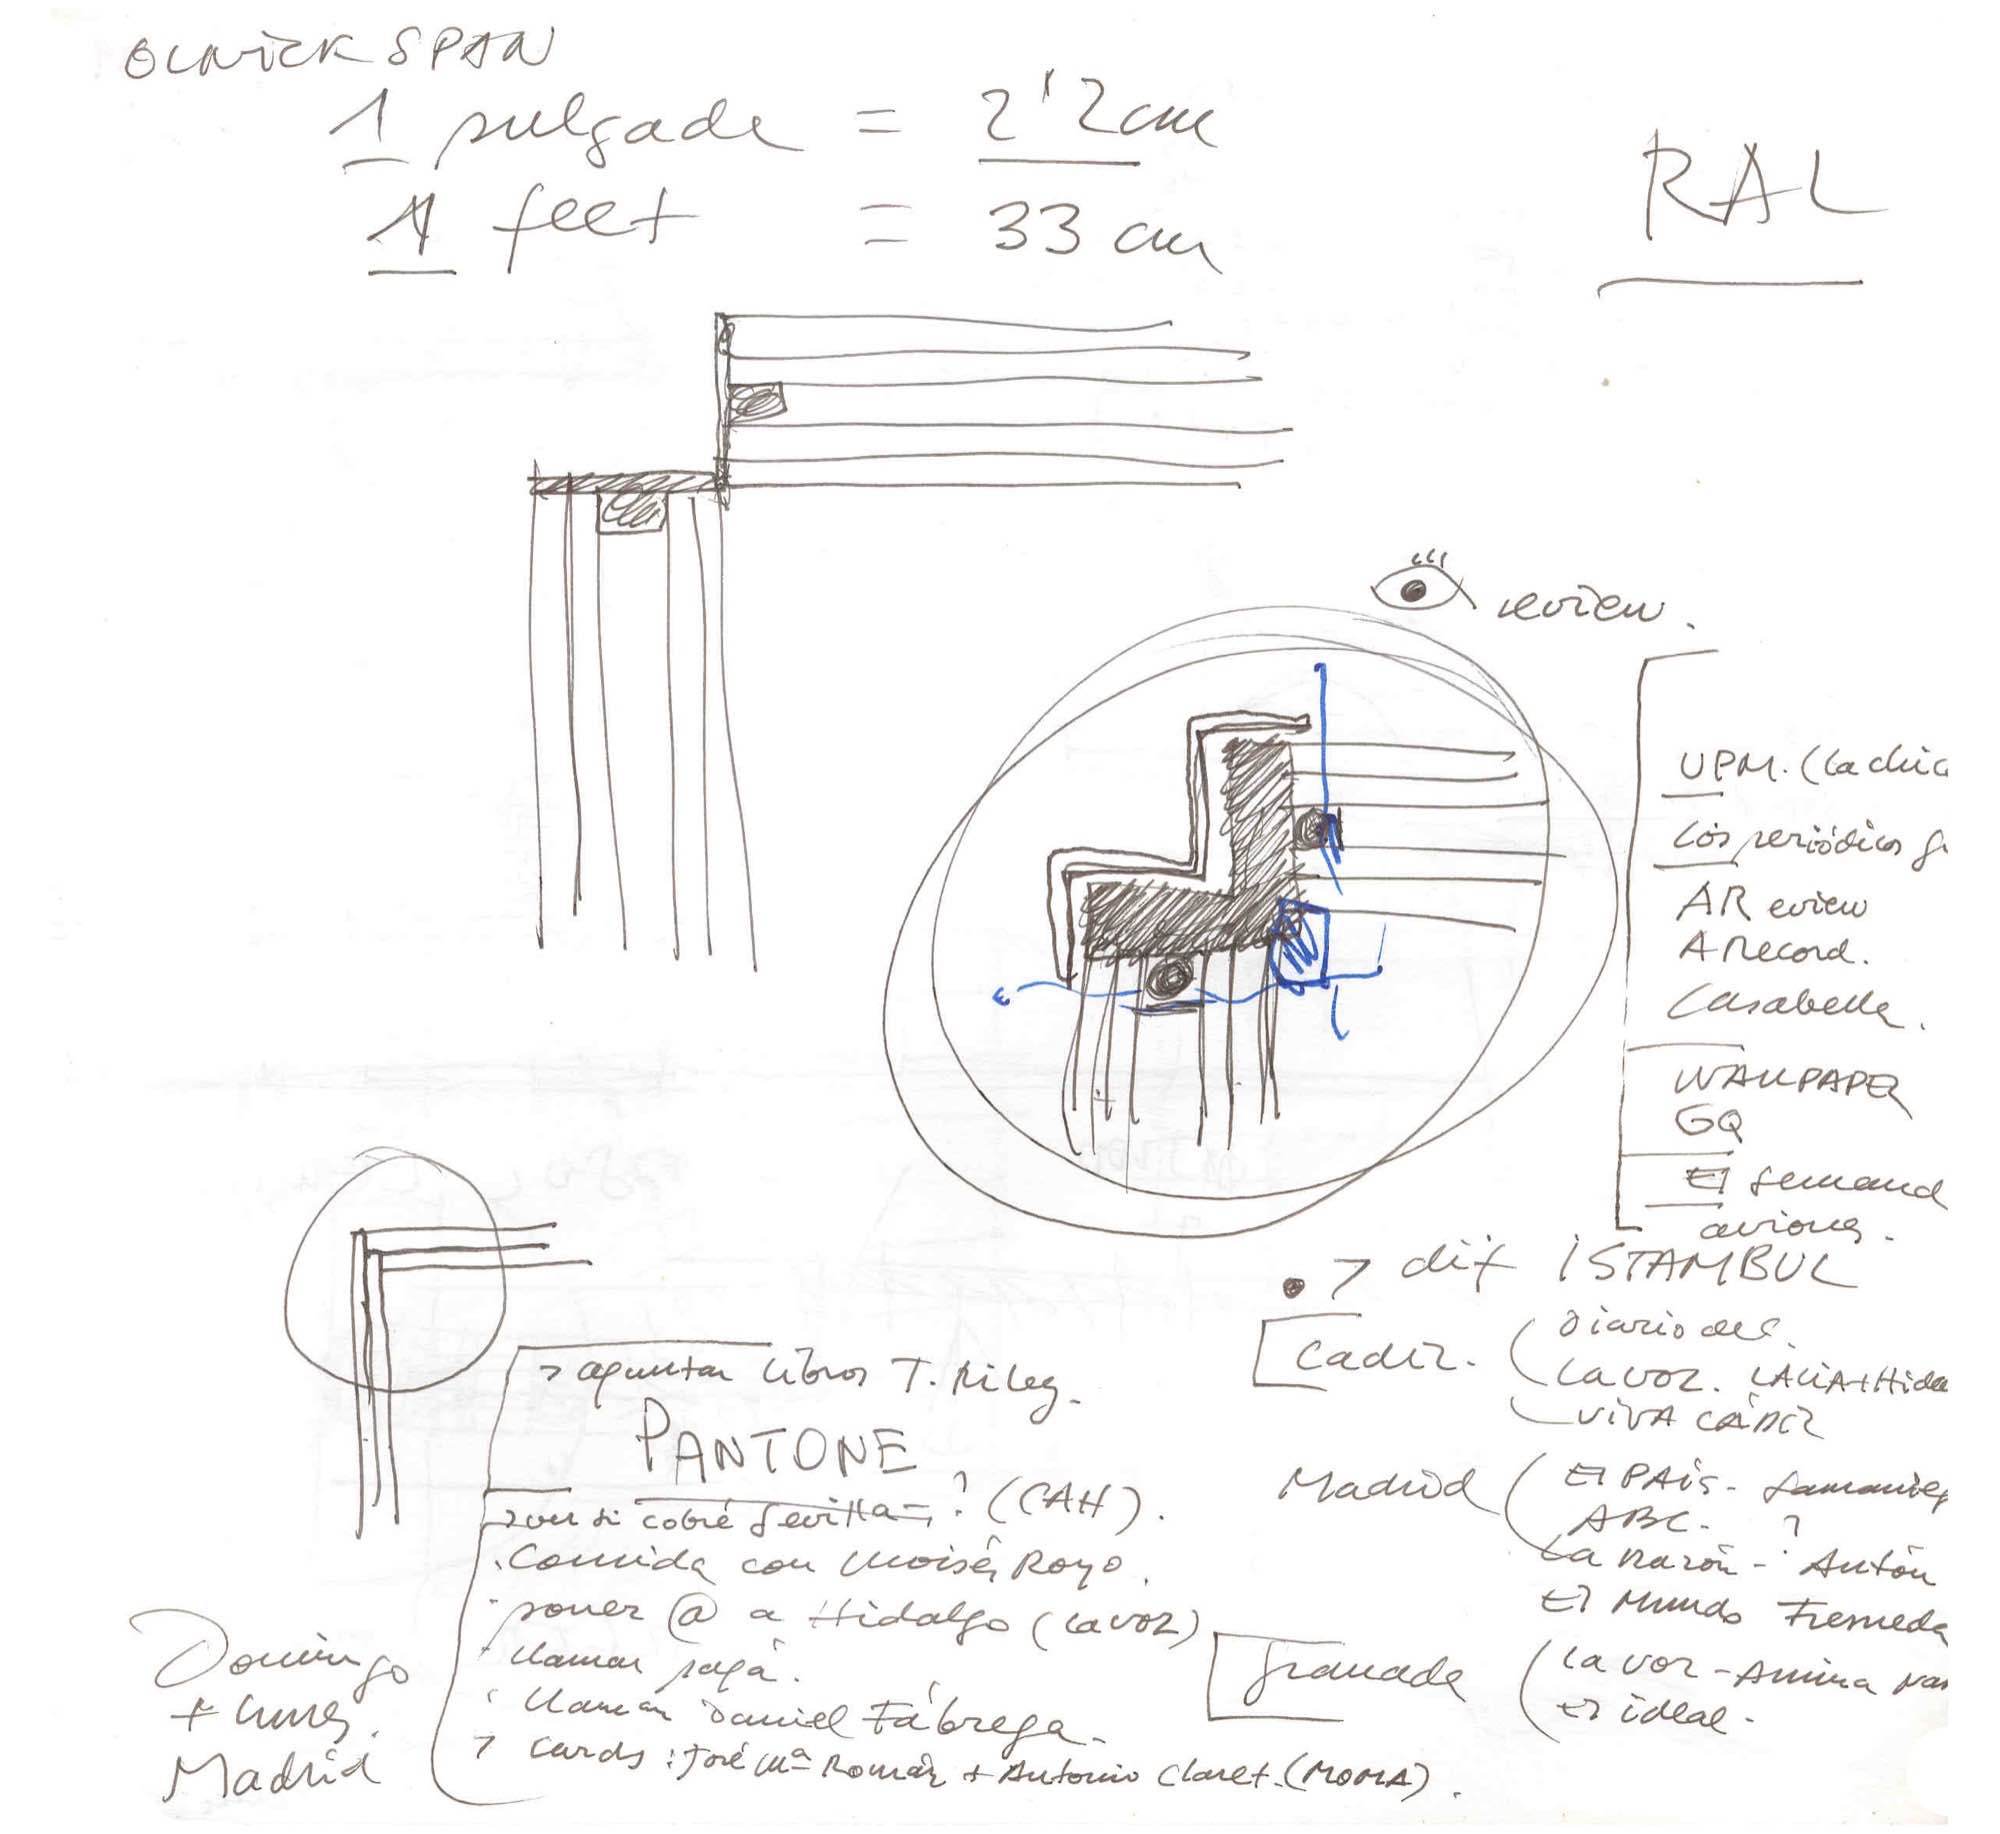 OLNICK SPAN
1 pulgada = 2'2 cm
1 feet = 33 cm
RAL
review.
UPM. (la chic
los periódicos
AR eview
A Record.
Casabella.
WALLPAPER
GQ
El semanal
aviones.
> dif ISTAMBUL
Cadiz.
Diario de C.
La voz.
VIVA CÁDIZ
Madrid
El PAÍS -
ABC. ?
La Razón - Antón
El Mundo Fresneda
Granada
La voz - Amina
El ideal.
> apuntar libros T. Riley.
PANTONE
> ver si cobré Sevilla ? (CAH).
. Comida con Moisés Royo.
. poner @ a Hidalgo (La voz)
. llamar papá.
. llamar Daniel Fábrega.
> cards : José Mª Román + Antonio Claret. (MOMA).
Domingo
+ lunes.
Madrid